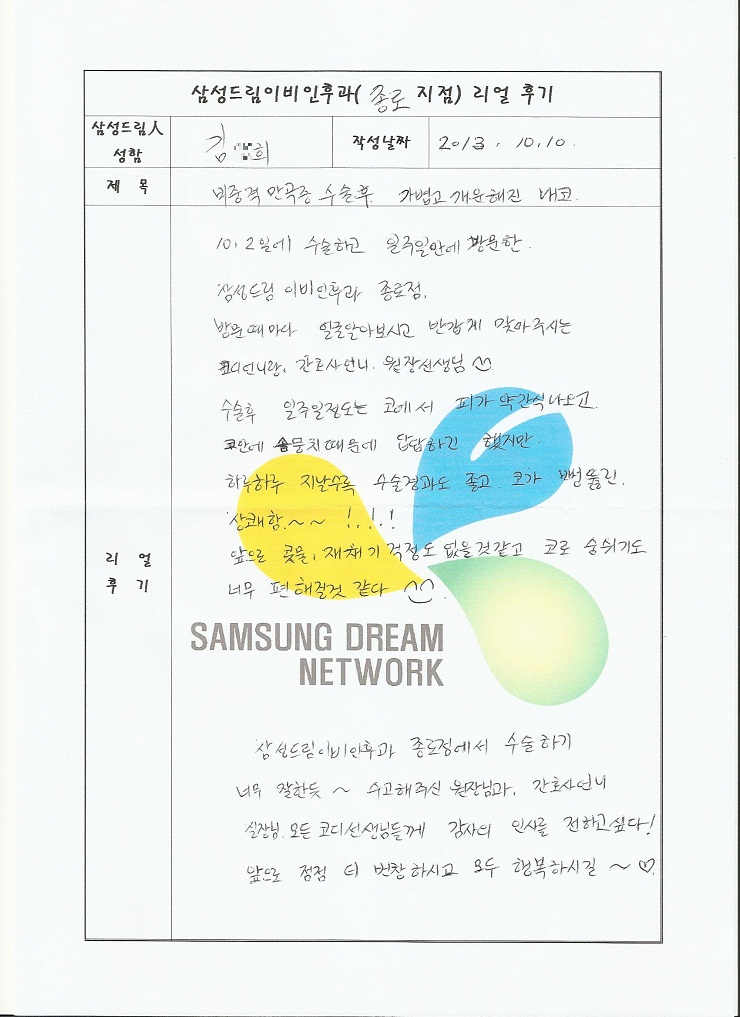 삼성드림이비인후과( 종로 지점) 리얼 후기
삼성드림人 성함
김 희
작성날짜
2013. 10.10.
제 목
비중격 만곡증 수술후 가볍고 개운해진 내코.
리 얼 후 기
10. 2일에 수술하고 일주일만에 방문한.
삼성드림 이비인후과 종로점.
방문때마다 얼굴알아보시고 반갑게 맞아주시는
코디언니랑, 간호사언니. 원장선생님
수술후 일주일정도는 코에서 피가 약간식나오고.
코안에 솜뭉치때문에 답답하긴 했지만
하루하루 지날수록 수술경과도 좋고. 코가 뻥 뚫린.
상쾌함.~~ !.!.!
앞으로 콧물, 재채기 걱정도 없을것같고 코로 숨쉬기도
너무 편해질것 같다 ^^.
SAMSUNG DREAM
NETWORK
삼성드림이비인후과 종로점에서 수술하기
너무 잘한듯 ~ 수고해주신 원장님과, 간호사언니
실장님, 모든 코디선생님들께 감사의 인사를 전하고싶다!
앞으로 점점 더 번창하시고 모두 행복하시길 ~ ♡.